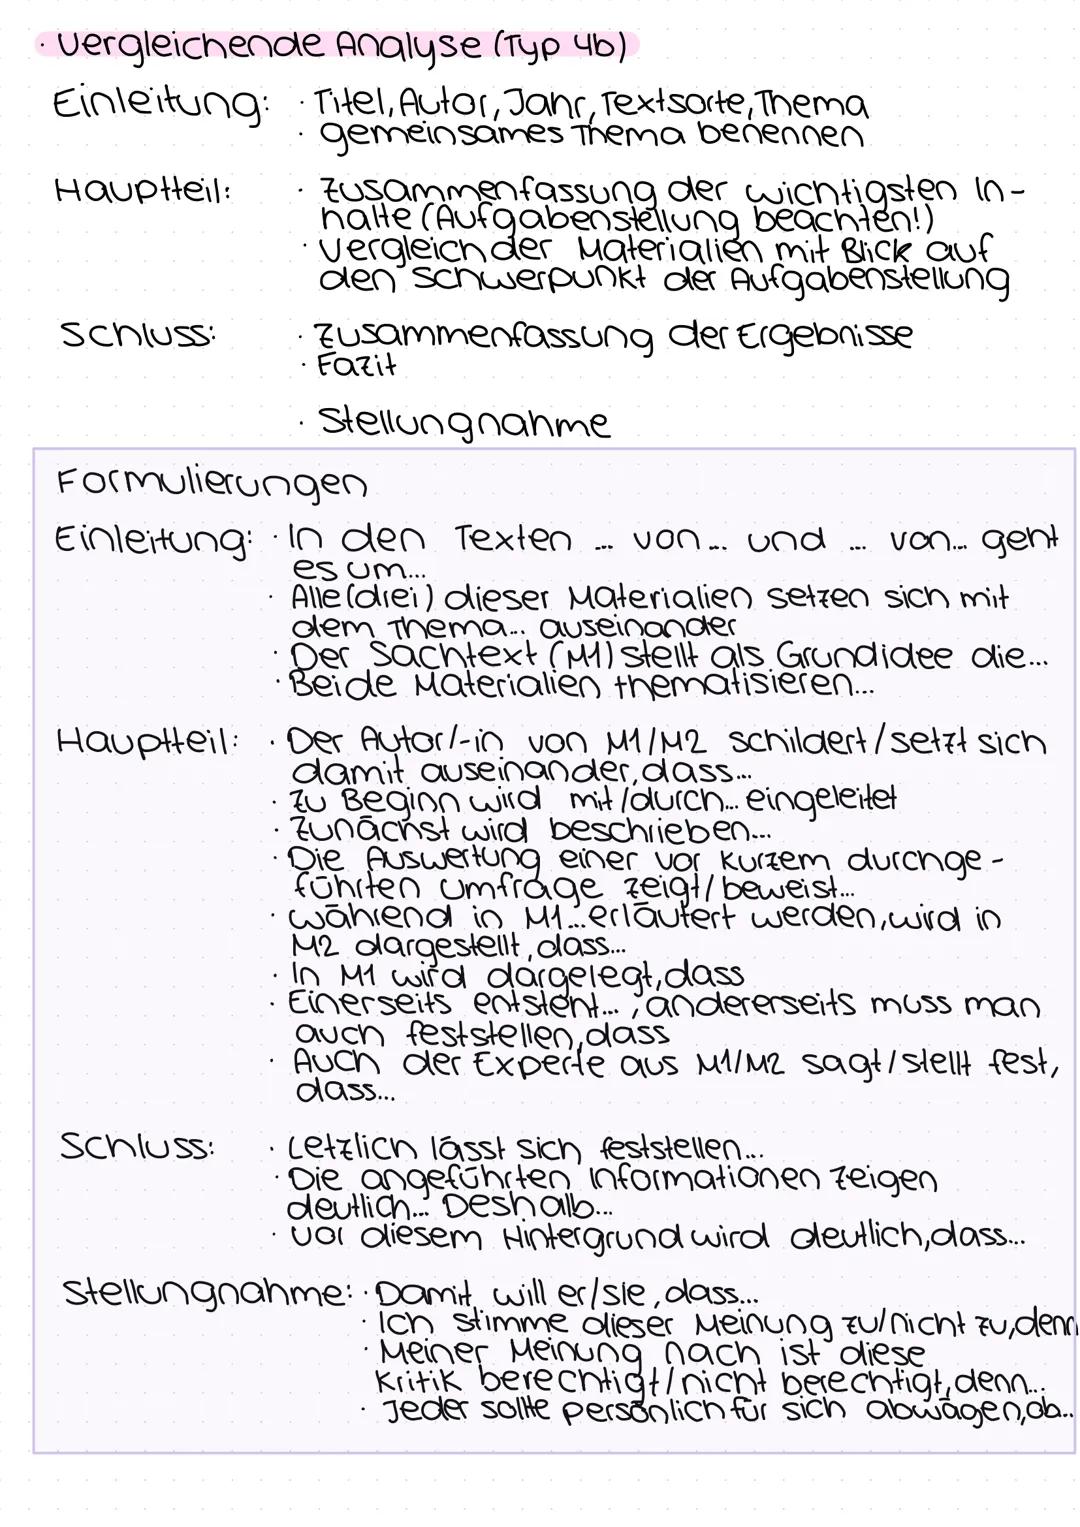 · Vergleichende Analyse (Typ 4b)
Einleitung: · Titel, Autor, Jahr, Textsorte, Thema
· gemeinsames Thema benennen
Hauptteil: · Zusammenfassung der wichtigsten In-
halte (Aufgabenstellung beachten!)
· Vergleich der Materialien mit Blick auf
den Schwerpunkt der Aufgabenstellung
Schluss: · Zusammenfassung der Ergebnisse
· Fazit
· Stellungnahme
Formulierungen
Einleitung: · In den Texten ... von ... und ... von... geht
es um...
· Alle (drei) dieser Materialien setzen sich mit
dem Thema... auseinander
· Der Sachtext (M1) stellt als Grundidee die...
· Beide Materialien thematisieren...
Hauptteil: · Der Autor/-in von M1/M2 schildert/setzt sich
damit auseinander, dass...
· Zu Beginn wird mit/durch... eingeleitet
· Zunächst wird beschrieben...
· Die Auswertung einer vor kurzem durchge-
führten Umfrage zeigt/beweist...
· Während in M1... erläutert werden, wird in
M2 dargestellt, dass...
· In M1 wird dargelegt, dass
· Einerseits entsteht..., andererseits muss man
auch feststellen, dass
· Auch der Experte aus M1/M2 sagt/stellt fest,
dass...
Schluss: · Letzlich lässt sich feststellen...
· Die angeführten Informationen zeigen
deutlich... Deshalb...
· Vor diesem Hintergrund wird deutlich, dass...
Stellungnahme: · Damit will er/sie, dass...
· Ich stimme dieser Meinung zu/nicht zu, denn
· Meiner Meinung nach ist diese
Kritik berechtigt/nicht berechtigt, denn...
· Jeder sollte persönlich für sich abwägen, ob...